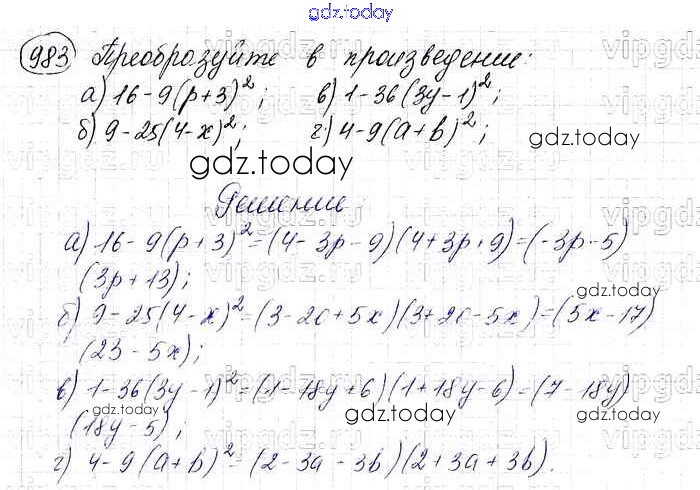 gdz.today
983 Преобразуйте в произведение:
а) 16-9(p+3)²; в) 1-36(3y-1)²;
б) 9-25(4-x)²; г) 4-9(a+b)²;
gdz.today
gdz.today
Решение
а) 16-9(p+3)²=(4-3p-9)(4+3p+9)=(-3p-5)
(3p+13);
gdz.today
б) 9-25(4-x)²=(3-20+5x)(3+20-5x)=(5x-17)
(23-5x);
gdz.today
в) 1-36(3y-1)²=(1-18y+6)(1+18y-6)=(7-18y)
(18y-5);
gdz.today
gdz.today
г) 4-9(a+b)²=(2-3a-3b)(2+3a+3b).